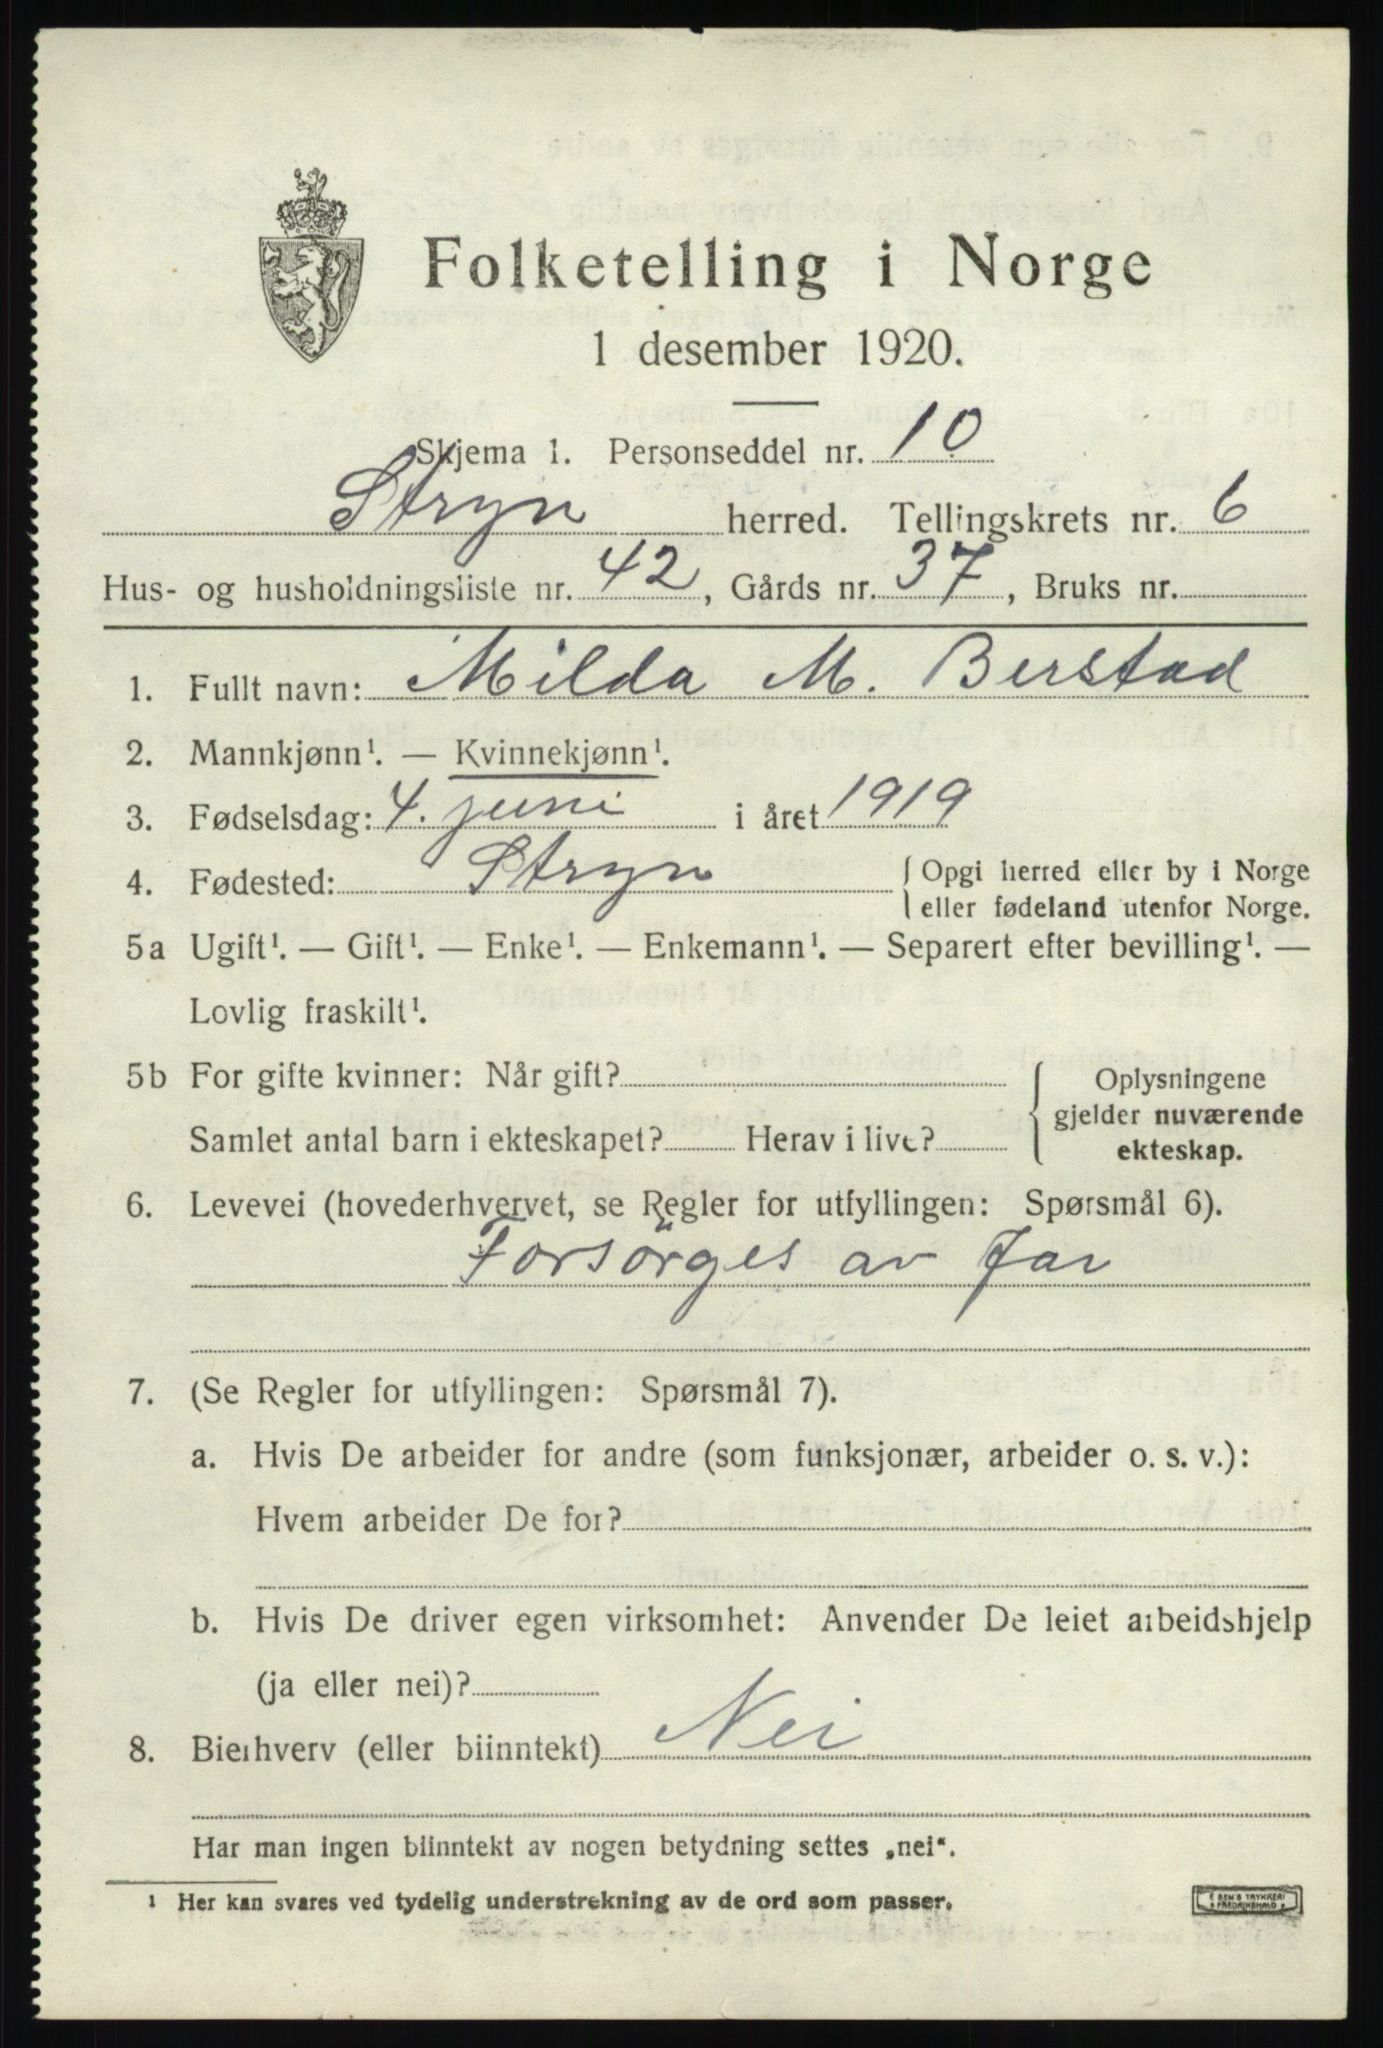 Folketelling i Norge
1 desember 1920.
Skjema 1. Personseddel nr. 10
Stryn herred. Tellingskrets nr. 6
Hus- og husholdningsliste nr. 42, Gårds nr. 37, Bruks nr.
1. Fullt navn: Milda M. Berstad
2. Mannkjønn¹. — Kvinnekjønn¹.
3. Fødselsdag: 4. juni i året 1919
4. Fødested: Stryn { Opgi herred eller by i Norge
eller fødeland utenfor Norge.
5a Ugift¹. — Gift¹. — Enke¹. — Enkemann¹. — Separert efter bevilling¹. —
Lovlig fraskilt¹.
5b For gifte kvinner: Når gift?
Samlet antal barn i ekteskapet? Herav i live?
Oplysningene
gjelder nuværende
ekteskap.
6. Levevei (hovederhvervet, se Regler for utfyllingen: Spørsmål 6).
Forsörges av far
7. (Se Regler for utfyllingen: Spørsmål 7).
a. Hvis De arbeider for andre (som funksjonær, arbeider o. s. v.):
Hvem arbeider De for?
b. Hvis De driver egen virksomhet: Anvender De leiet arbeidshjelp
(ja eller nei)?
8. Bierhverv (eller biinntekt) Nei
Har man ingen biinntekt av nogen betydning settes „nei“.
¹ Her kan svares ved tydelig understrekning av de ord som passer.
E SEM'S TRYKKERI
FREDRIKSHALD